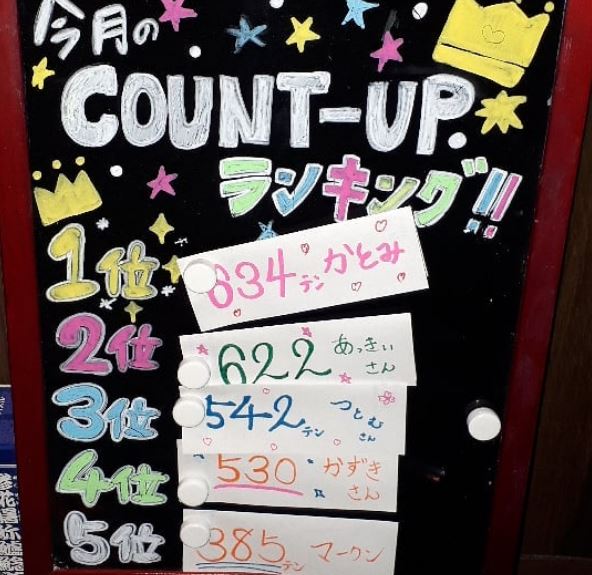 今月の
COUNT-UP
ランキング!!
1位 634テン かとみ
2位 622 あっきぃさん
3位 542テン つとむさん
4位 530 かずきさん
5位 385テン マークン